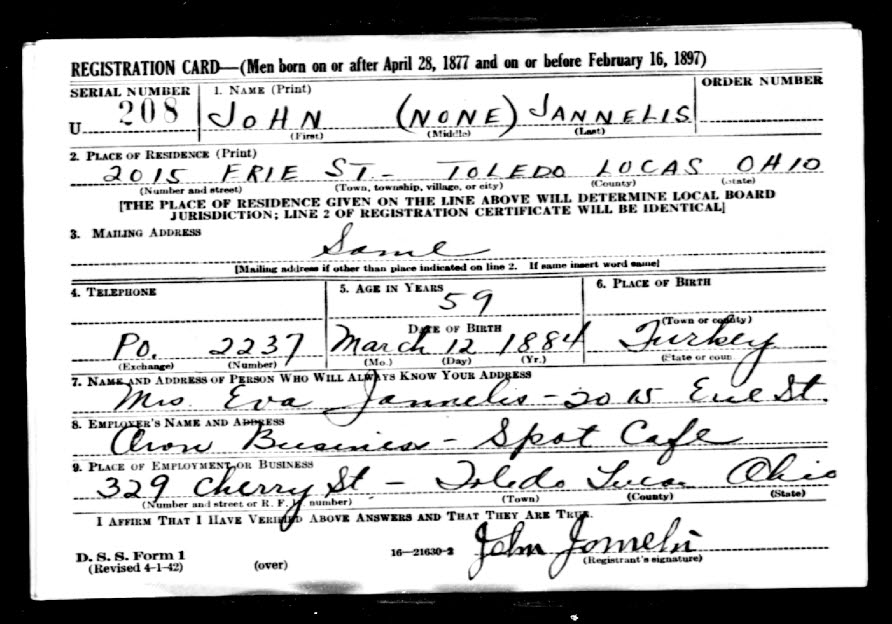 REGISTRATION CARD—(Men born on or after April 28, 1877 and on or before February 16, 1897)
SERIAL NUMBER 1. NAME (Print) ORDER NUMBER
U 208 JOHN (NONE) JANNELIS
(First) (Middle) (Last)
2. PLACE OF RESIDENCE (Print)
2015 ERIE ST- TOLEDO LUCAS OHIO
(Number and street) (Town, township, village, or city) (County) (State)
[THE PLACE OF RESIDENCE GIVEN ON THE LINE ABOVE WILL DETERMINE LOCAL BOARD
JURISDICTION; LINE 2 OF REGISTRATION CERTIFICATE WILL BE IDENTICAL]
3. MAILING ADDRESS
Same
[Mailing address if other than place indicated on line 2. If same insert word same]
4. TELEPHONE 5. AGE IN YEARS 6. PLACE OF BIRTH
59
DATE OF BIRTH (Town or county)
Po. 2237 March 12 1884 Turkey
(Exchange) (Number) (Mo.) (Day) (Yr.) (State or coun
7. NAME AND ADDRESS OF PERSON WHO WILL ALWAYS KNOW YOUR ADDRESS
Mrs Eva Jannelis - 2015 Erie St.
8. EMPLOYER'S NAME AND ADDRESS
Own Business - Spot Cafe
9. PLACE OF EMPLOYMENT OR BUSINESS
329 Cherry St - Toledo Lucas Ohio
(Number and street or R. F. D. number) (Town) (County) (State)
I AFFIRM THAT I HAVE VERIFIED ABOVE ANSWERS AND THAT THEY ARE TRUE.
D. S. S. Form 1
(Revised 4-1-42) (over) 16—21630-2 John
(Registrant's signature)